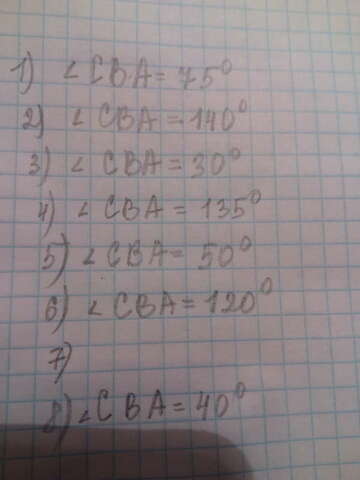 1) ∠CBA = 75°
2) ∠CBA = 140°
3) ∠CBA = 30°
4) ∠CBA = 135°
5) ∠CBA = 50°
6) ∠CBA = 120°
7)
8) ∠CBA = 40°